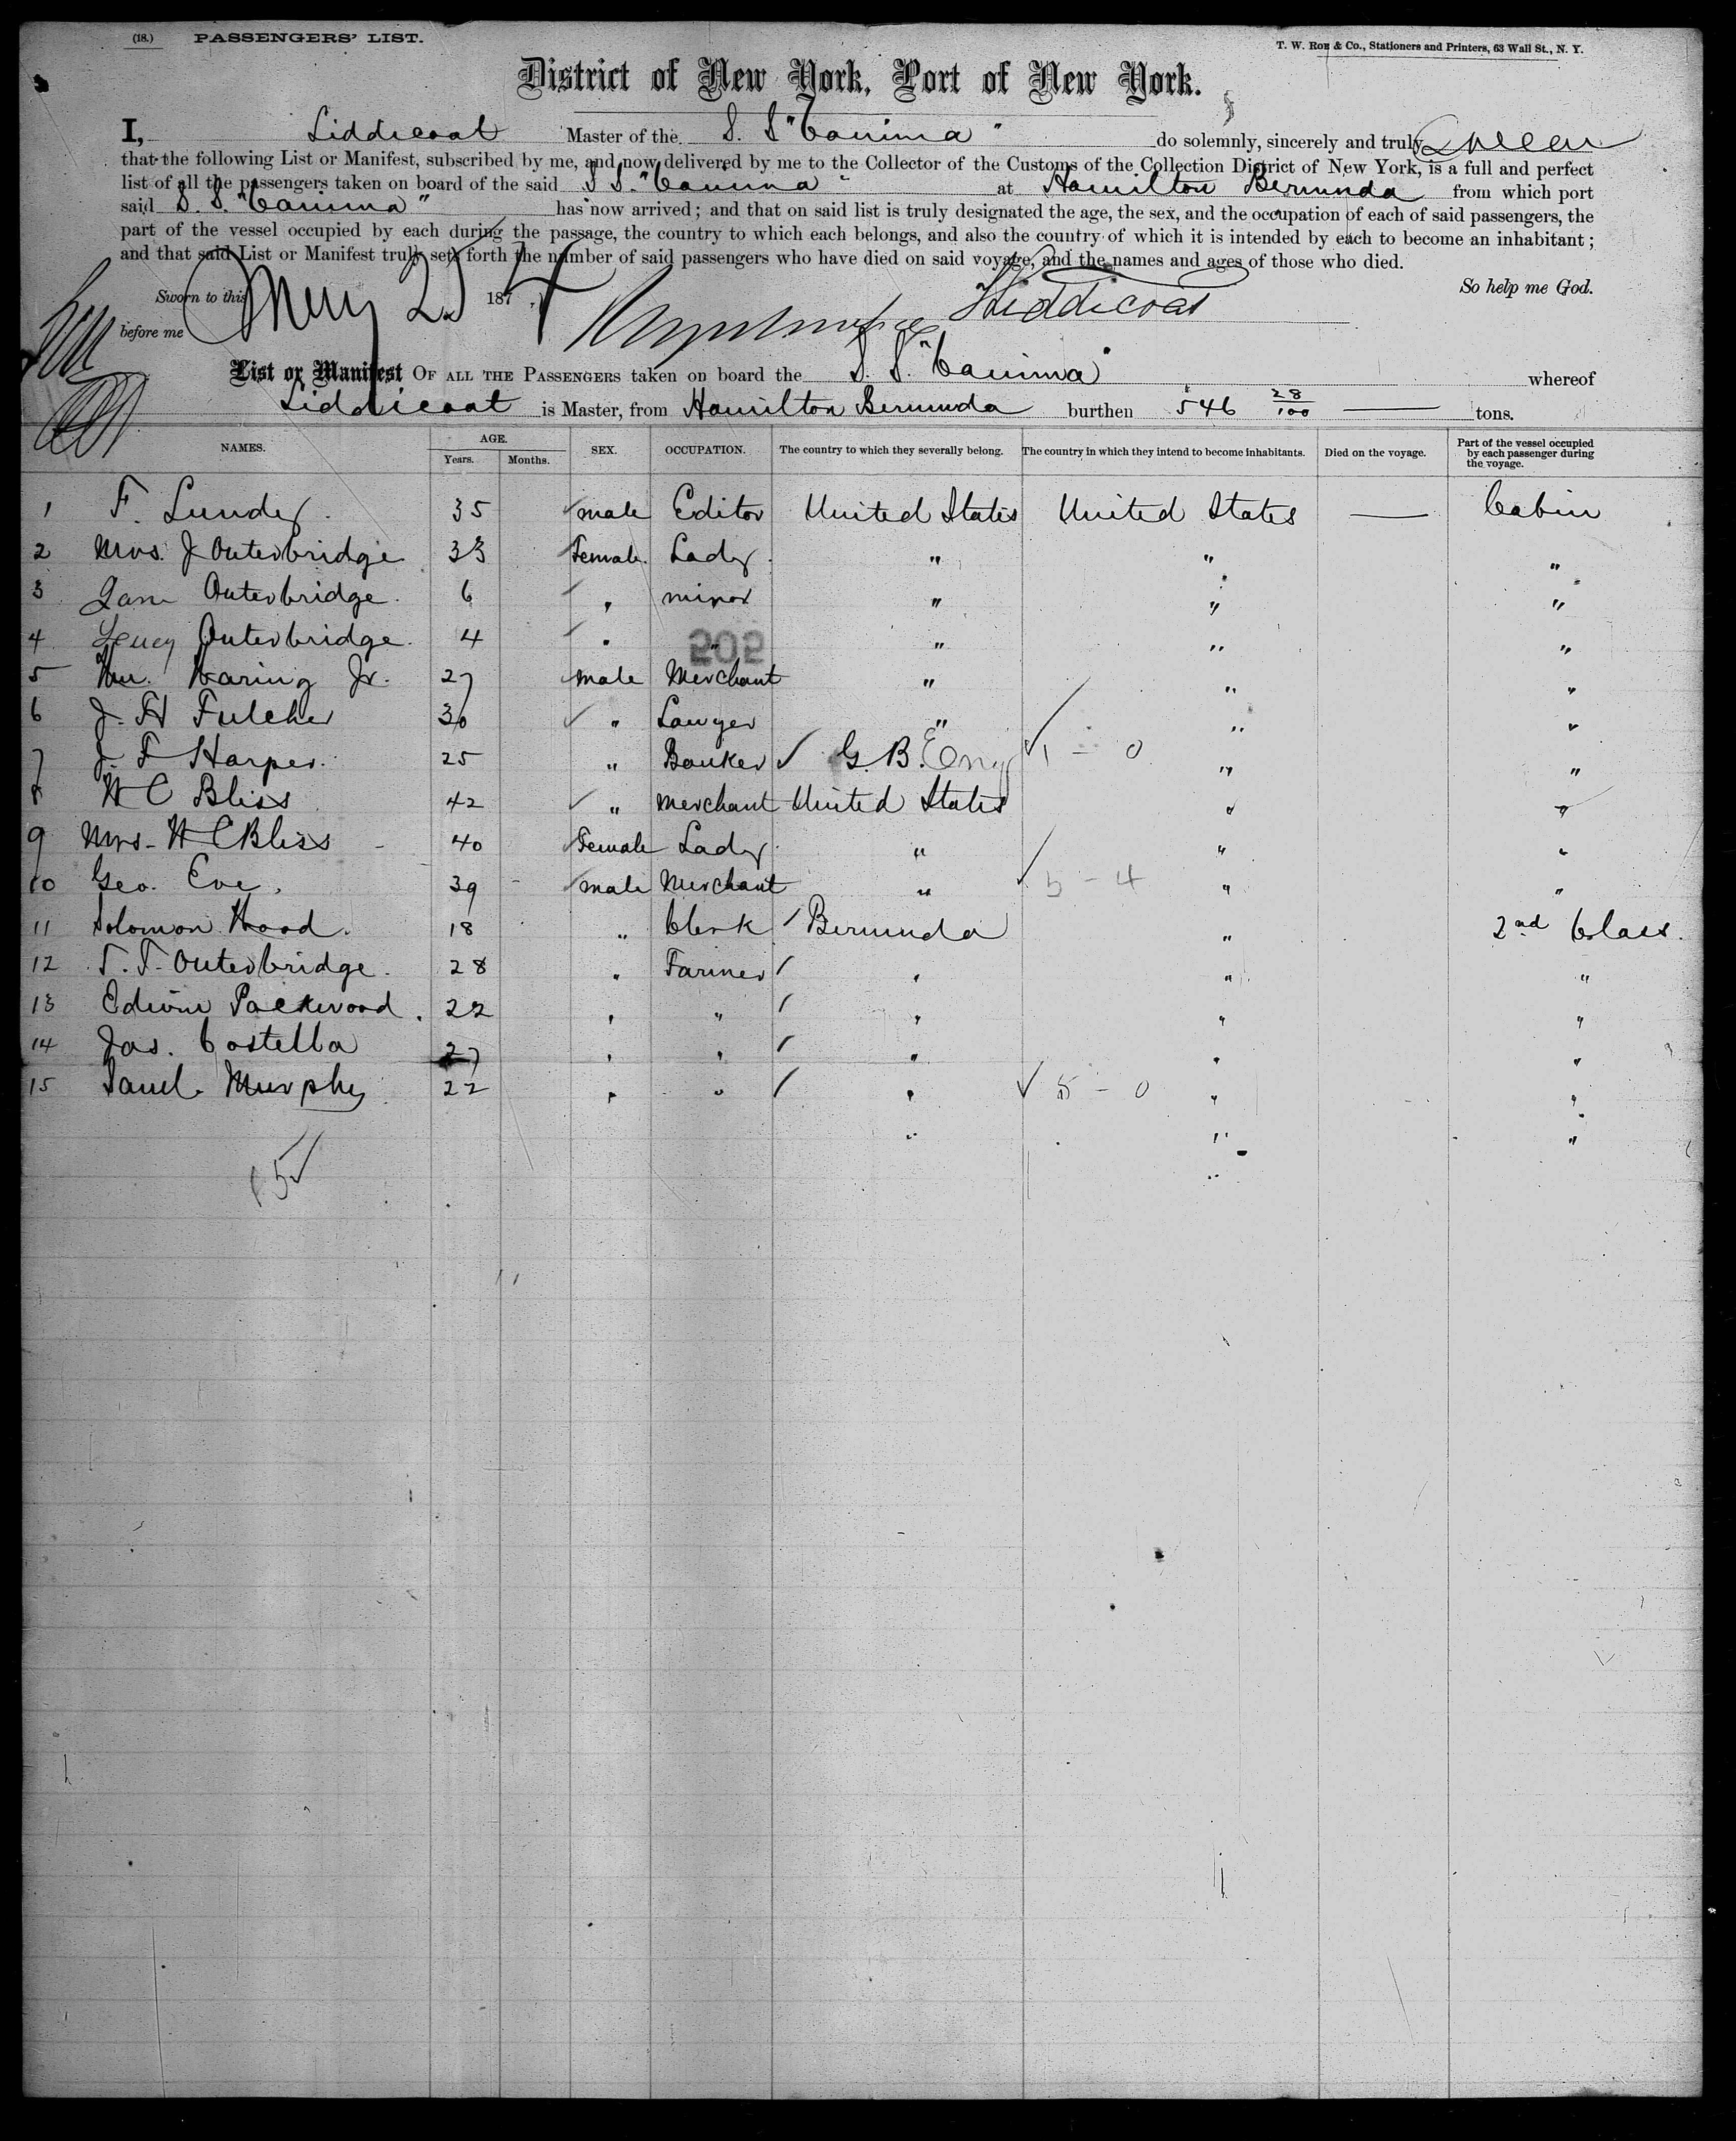 (18.) PASSENGERS' LIST.
T. W. Roe & Co., Stationers and Printers, 63 Wall St., N. Y.
District of New York, Port of New York.
I, Liddicoat Master of the S. S "Canima" do solemnly, sincerely and truly Swear
that the following List or Manifest, subscribed by me, and now delivered by me to the Collector of the Customs of the Collection District of New York, is a full and perfect
list of all the passengers taken on board of the said S S. "Canima" at Hamilton Bermuda from which port
said S. S. "Canima" has now arrived; and that on said list is truly designated the age, the sex, and the occupation of each of said passengers, the
part of the vessel occupied by each during the passage, the country to which each belongs, and also the country of which it is intended by each to become an inhabitant;
and that said List or Manifest truly sets forth the number of said passengers who have died on said voyage, and the names and ages of those who died.
So help me God.
Sworn to this May 25 1874
before me
Liddicoat
List or Manifest OF ALL THE PASSENGERS taken on board the S. S. "Canima" whereof
Liddicoat is Master, from Hamilton Bermuda burthen 546 28/100 tons.
NAMES. AGE. Years. Months. SEX. OCCUPATION. The country to which they severally belong. The country in which they intend to become inhabitants. Died on the voyage. Part of the vessel occupied by each passenger during the voyage.
1 F. Lundy. 35 male Editor United States United States — Cabin
2 Mrs. J Outerbridge 33 Female. Lady. " " "
3 Jane Outerbridge. 6 " minor " " "
4 Lucy Outerbridge. 4 " " " " "
5 Haring Jr. 27 male Merchant " " "
6 J. H Fulcher 30 " Lawyer " " "
7 J. F Harper. 25 " Banker G. B. Eng 1 - 0 " "
8 W C Bliss 42 " merchant United States " "
9 Mrs - W C Bliss - 40 Female Lady. " " "
10 Geo. Eve. 39 - male Merchant " 5 - 4 " "
11 Solomon Hood. 18 " Clerk Bermuda " 2nd Class.
12 T. F. Outerbridge. 28 " Farmer " " "
13 Edwin Packwood. 22 " " " " "
14 Jas. Costello 27 " " " " "
15 Saml. Murphy 22 " " " 5 - 0 " "
" " "
15